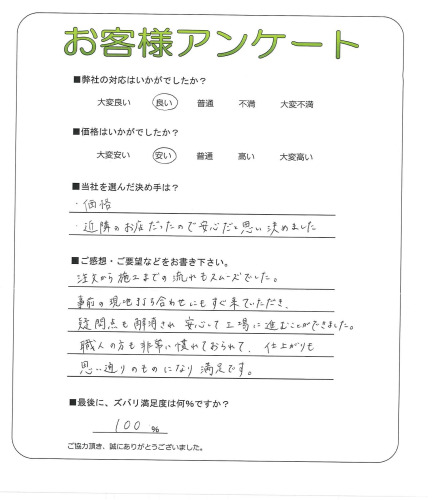 お客様アンケート
■弊社の対応はいかがでしたか？
大変良い 良い 普通 不満 大変不満
■価格はいかがでしたか？
大変安い 安い 普通 高い 大変高い
■当社を選んだ決め手は？
・価格
・近隣のお店だったので安心だと思い決めました
■ご感想・ご要望などをお書き下さい。
注文から施工までの流れもスムーズでした。
事前の現地打ち合わせにもすぐ来ていただき、
疑問点も解消され安心して工場に進むことができました。
職人の方も非常に慣れておられて、仕上がりも
思い通りのものになり満足です。
■最後に、ズバリ満足度は何％ですか？
100 ％
ご協力頂き、誠にありがとうございました。